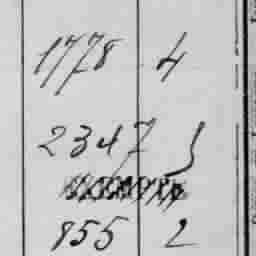 1778 4
2347
855 2